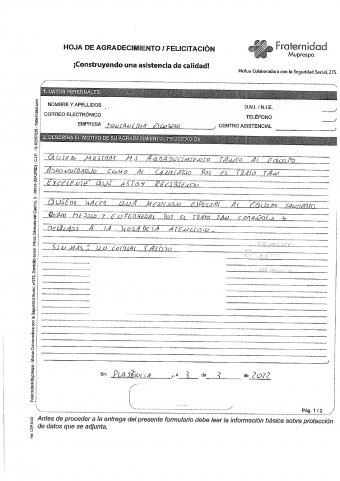 HOJA DE AGRADECIMIENTO / FELICITACIÓN
¡Construyendo una asistencia de calidad!
Fraternidad
Muprespa
Mutua Colaboradora con la Seguridad Social, 275.
1. DATOS PERSONALES
NOMBRE Y APELLIDOS
D.N.I. / N.I.E.
CORREO ELECTRÓNICO
TELÉFONO
EMPRESA FONTANERIA
CENTRO ASISTENCIAL
2. DESCRIBA EL MOTIVO DE SU AGRADECIMIENTO / FELICITACIÓN
QUIERO MOSTRAR MI AGRADECIMIENTO TANTO AL EQUIPO
ADMINISTRATIVO COMO AL SANITARIO POR EL TRATO TAN
EXCELENTE QUE ESTOY RECIBIENDO
QUIERO HACER UNA MENCION ESPECIAL AL EQUIPO SANITARIO
MEDICO Y ENFERMERAS POR EL TRATO TAN CORDIAL Y
A LA ATENCION.
SIN MAS UN CORDIAL SALUDO
En PLASENCIA, a 3 de 3 de 2022
Pág. 1 / 2
Antes de proceder a la entrega del presente formulario debe leer la información básica sobre protección
de datos que se adjunta.